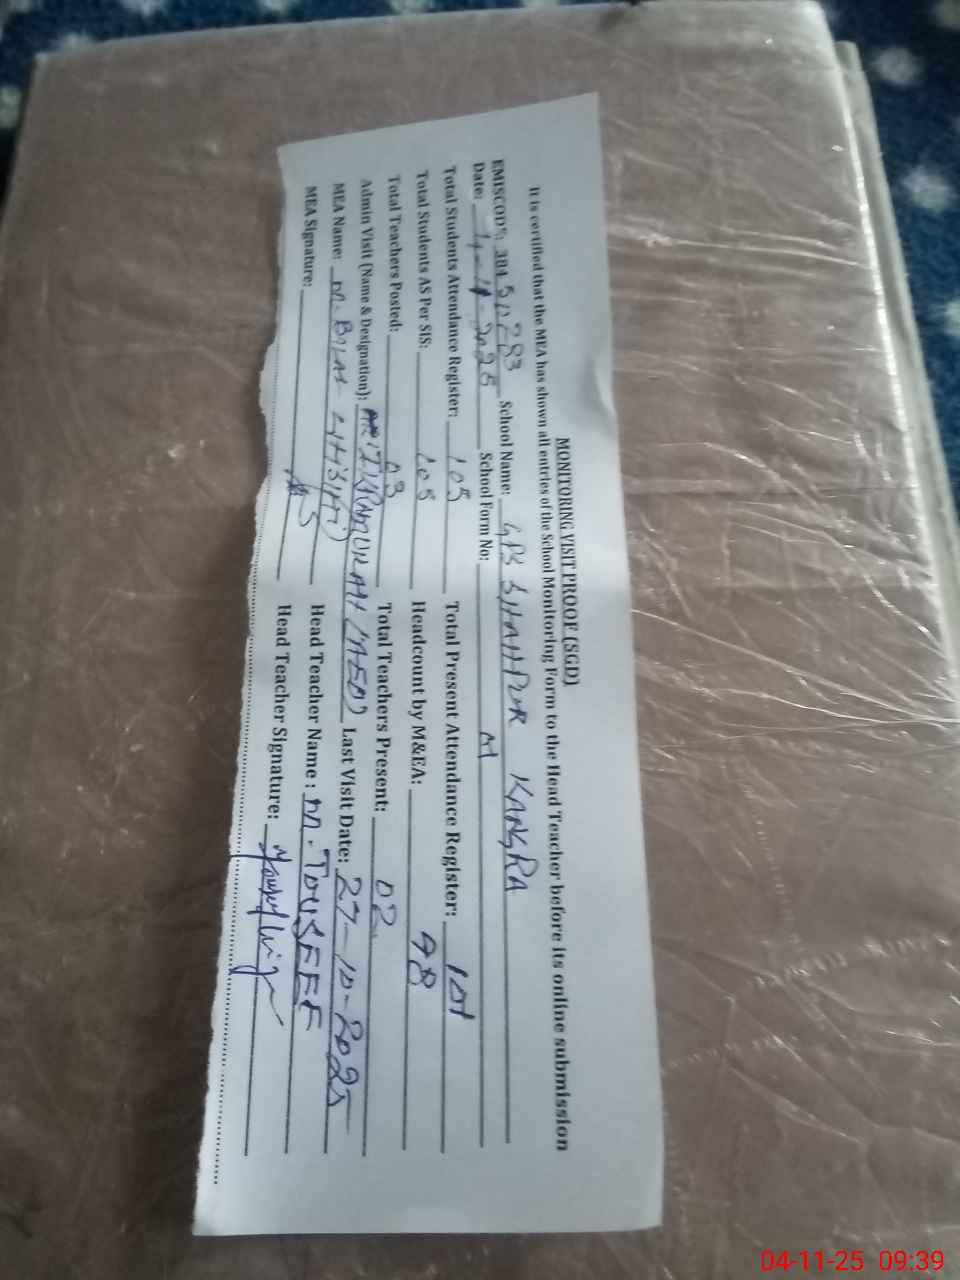 MONITORING VISIT PROOF (SGD)
It is certified that the MEA has shown all entries of the School Monitoring Form to the Head Teacher before its online submission
EMISCODE: 384 School Name: GPS SHAHPUR KANGRA
Date: 4-11-2025 School Form No:
Total Students Attendance Register: 105 Total Present Attendance Register: 101
Total Students AS Per SIS: 105 Headcount by M&EA: 98
Total Teachers Posted: 03 Total Teachers Present: 02
Admin Visit (Name & Designation): IKRAMULLAH (AEO) Last Visit Date: 27-10-2025
MEA Name: M. Head Teacher Name: M. TOUSEEF
MEA Signature: Head Teacher Signature:
04-11-25 09:39